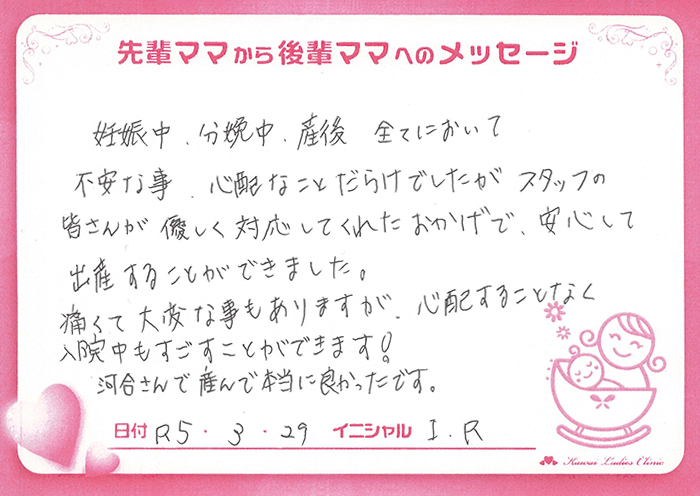 先輩ママから後輩ママへのメッセージ
妊娠中、分娩中、産後 全てにおいて
不安な事、心配なことだらけでしたが スタッフの
皆さんが 優しく 対応してくれたおかげで、安心して
出産することができました。
痛くて大変な事もありますが、心配することなく
入院中もすごすことができます!
河合さんで産んで本当に良かったです。
日付 R5・3・29 イニシャル I.R
Kawai Ladies Clinic